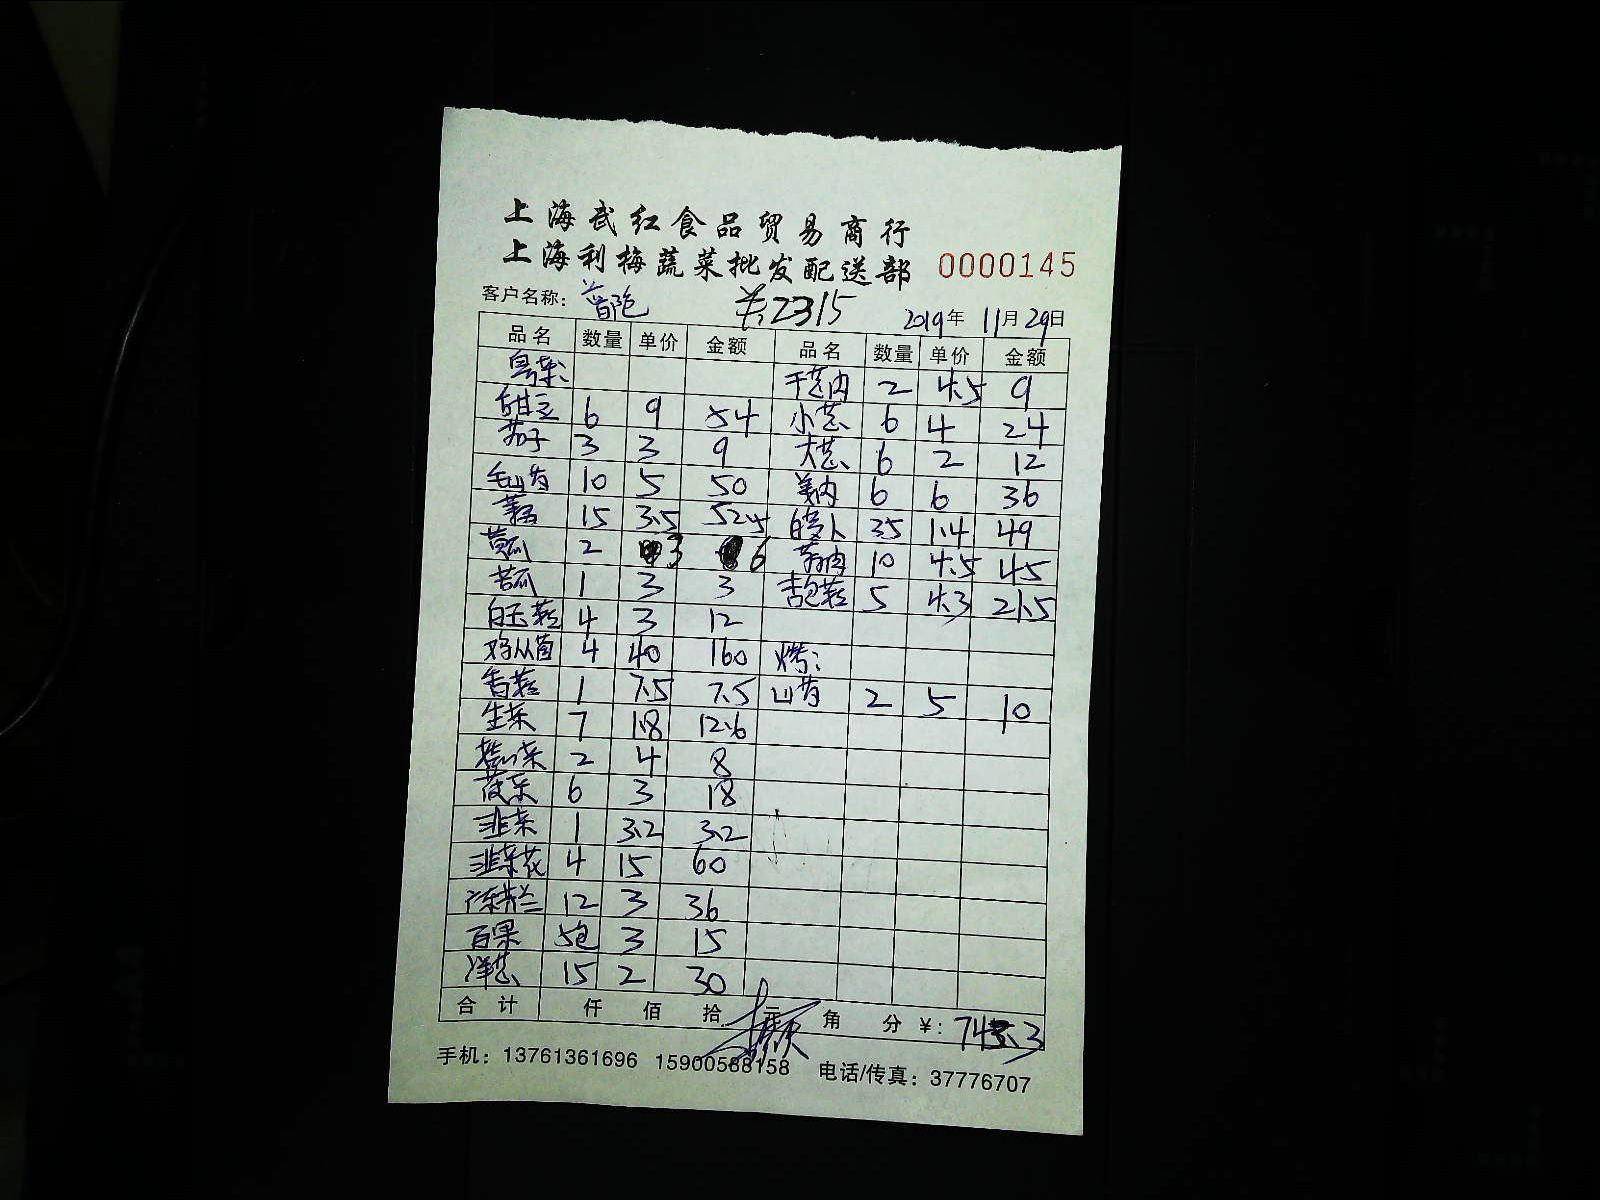 上海武红食品贸易商行
上海利梅蔬菜批发配送部 0000145
客户名称: ¥:2315 2019年 11月29日
品名 数量 单价 金额 品名 数量 单价 金额
粤菜: 2 4.5 9
甜豆 6 9 54 小葱 6 4 24
茄子 3 3 9 大葱 6 2 12
毛山芍 10 5 50 姜肉 6 6 36
15 3.5 52.5 白萝卜 35 1.4 49
黄瓜 2 3 6 10 4.5 45
苦瓜 1 3 3 杏包菇 5 4.3 21.5
白玉菇 4 3 12
鸡从菌 4 40 160 烤:
香菇 1 7.5 7.5 山芍 2 5 10
生菜 7 1.8 12.6
2 4 8
菠菜 6 3 18
韭菜 1 3.2 3.2
韭菜花 4 15 60
广东芥兰 12 3 36
百果 5包 3 15
洋葱 15 2 30
合计 仟 佰 拾 元 角 分 ¥: 745.3
手机: 13761361696 15900588158 电话/传真: 37776707